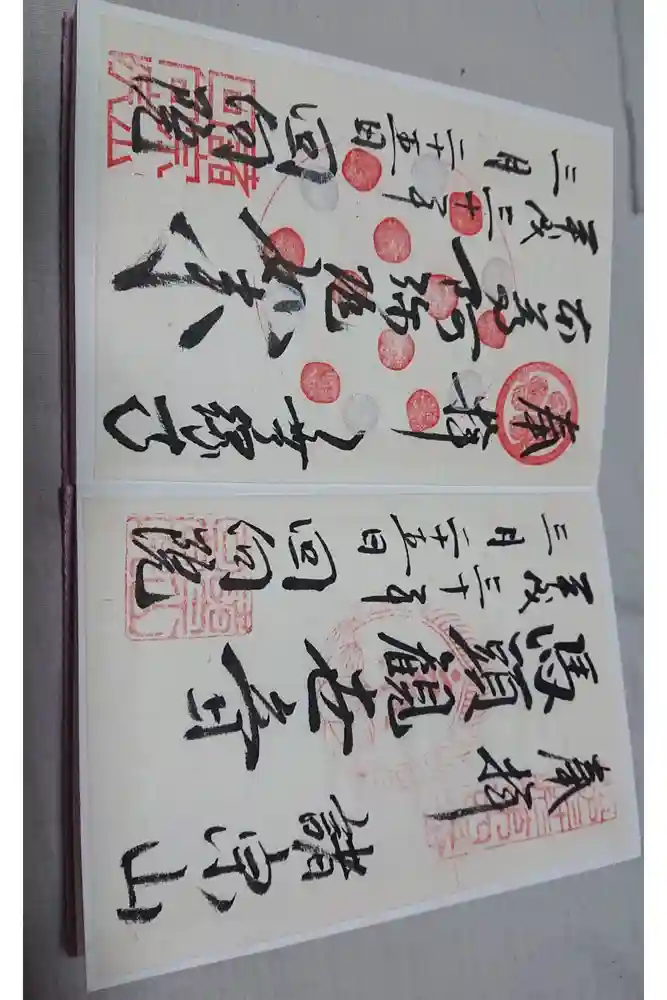 奉拝
諸宗山
馬頭觀世音
平成三十年
三月二十五日
回向院
奉拝
無縁寺
本尊
阿弥陀如来
平成三十年
三月二十五日
回向院